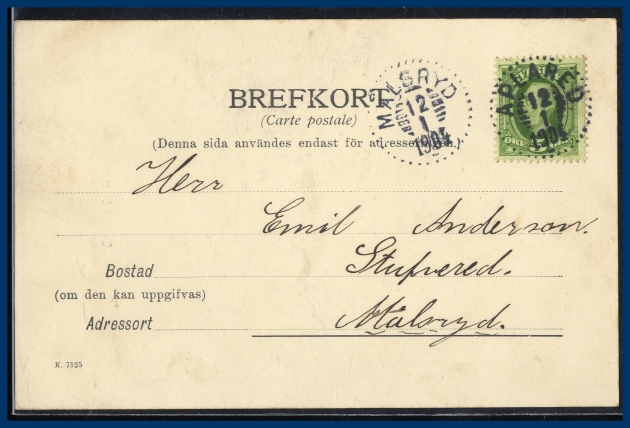 BREFKORT
(Carte postale)
(Denna sida användes endast för adresseringen.)
MÅLSRYD
12
1
1904
APLARED
12
1
1904
Herr
Emil Anderson.
Bostad
(om den kan uppgifvas)
Stufvered.
Adressort
Målsryd.
K. 7525